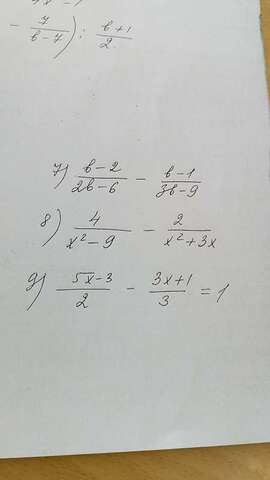 - 7/(b-7)) : (b+1)/2
7) (b-2)/(2b-6) - (b-1)/(3b-9)
8) 4/(x²-9) - 2/(x²+3x)
9) (5x-3)/2 - (3x+1)/3 = 1